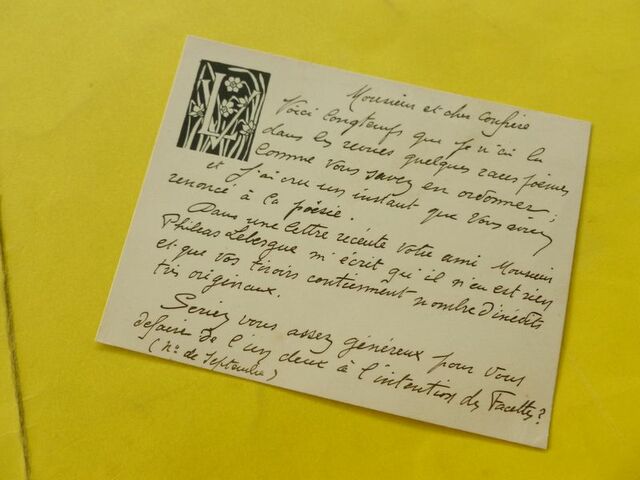 Monsieur et cher Confrère
Voici longtemps que je n'ai lu
dans les revues quelques rares poèmes
comme vous savez en ordonner ;
et j'ai cru un instant que vous aviez
renoncé à la poésie.
Dans une lettre récente votre ami Monsieur
Philéas Lebesgue m'écrit qu'il n'en est rien
et que vos tiroirs contiennent nombre d'inédits
très originaux.
Seriez vous assez généreux pour vous
défaire de l'un d'eux à l'intention des Facettes ?
(No de Septembre)